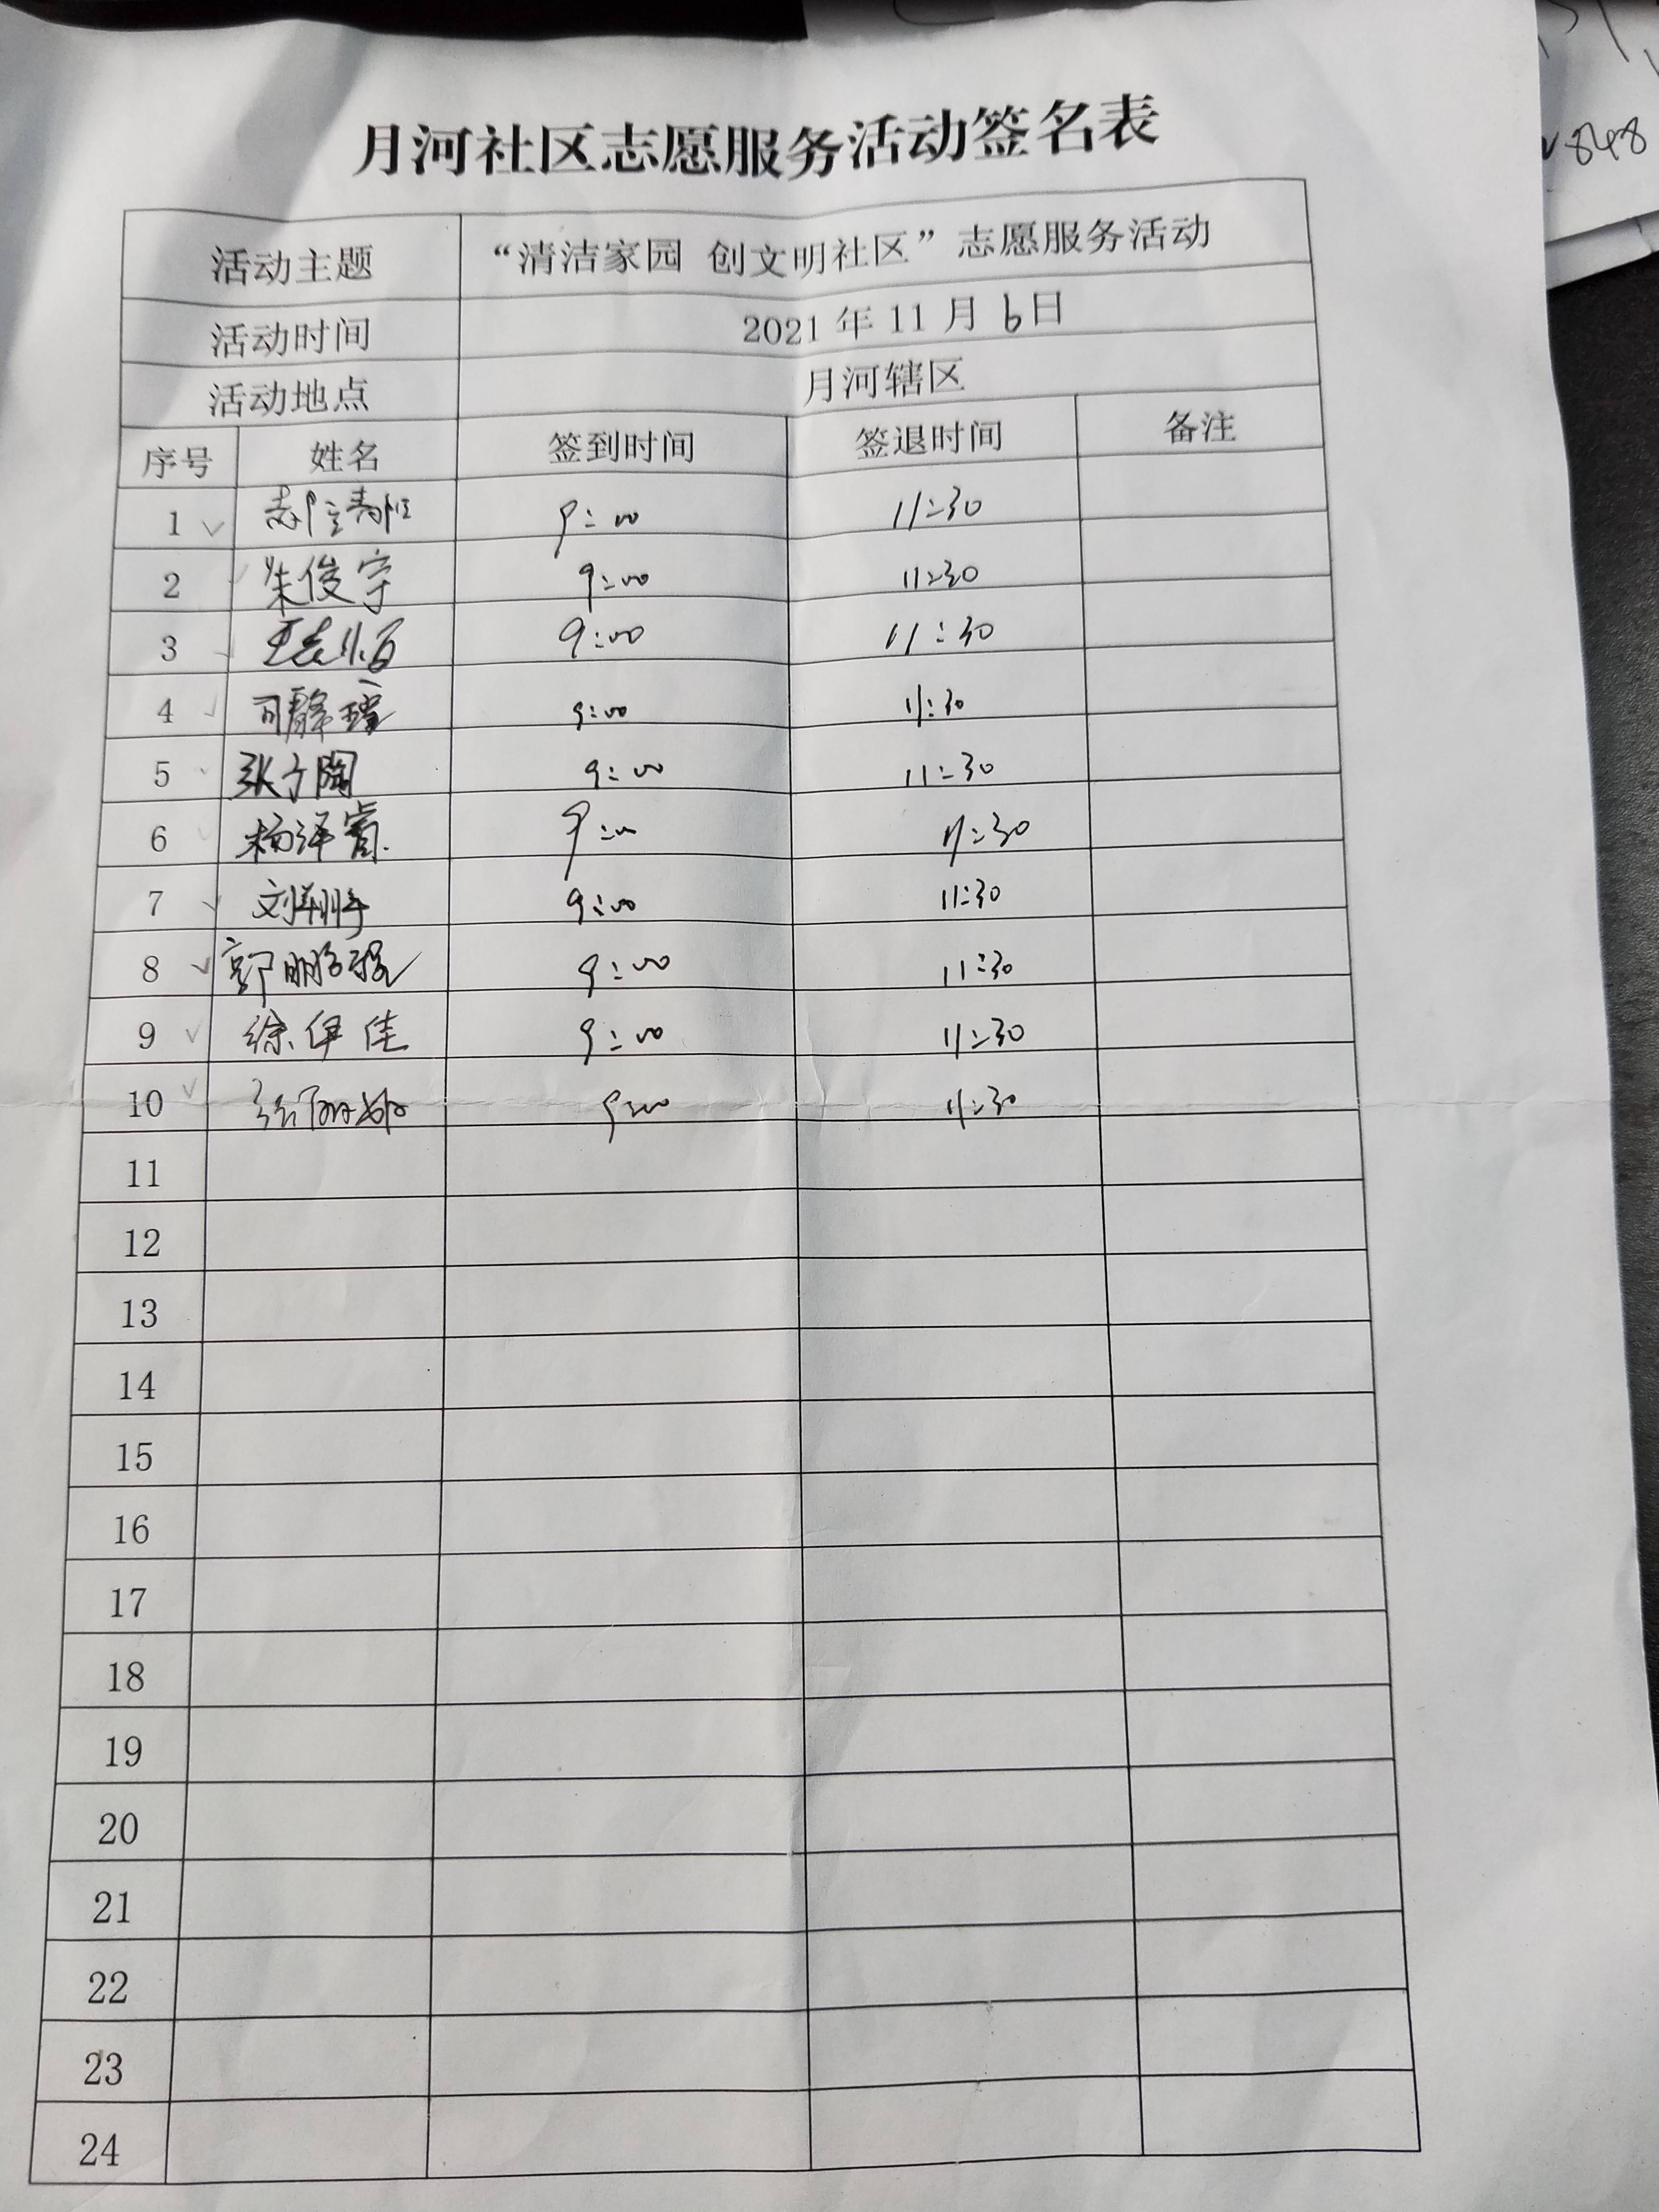 月河社区志愿服务活动签名表
活动主题 “清洁家园 创文明社区”志愿服务活动
活动时间 2021年11月6日
活动地点 月河辖区
序号 姓名 签到时间 签退时间 备注
1 9:00 11:30
2 朱俊宇 9:00 11:30
3 9:00 11:30
4 司静瑶 9:00 11:30
5 张子陶 9:00 11:30
6 杨泽睿 9:00 11:30
7 9:00 11:30
8 郭鹏程 9:00 11:30
9 徐伊佳 9:00 11:30
10 9:00 11:30
11
12
13
14
15
16
17
18
19
20
21
22
23
24
848